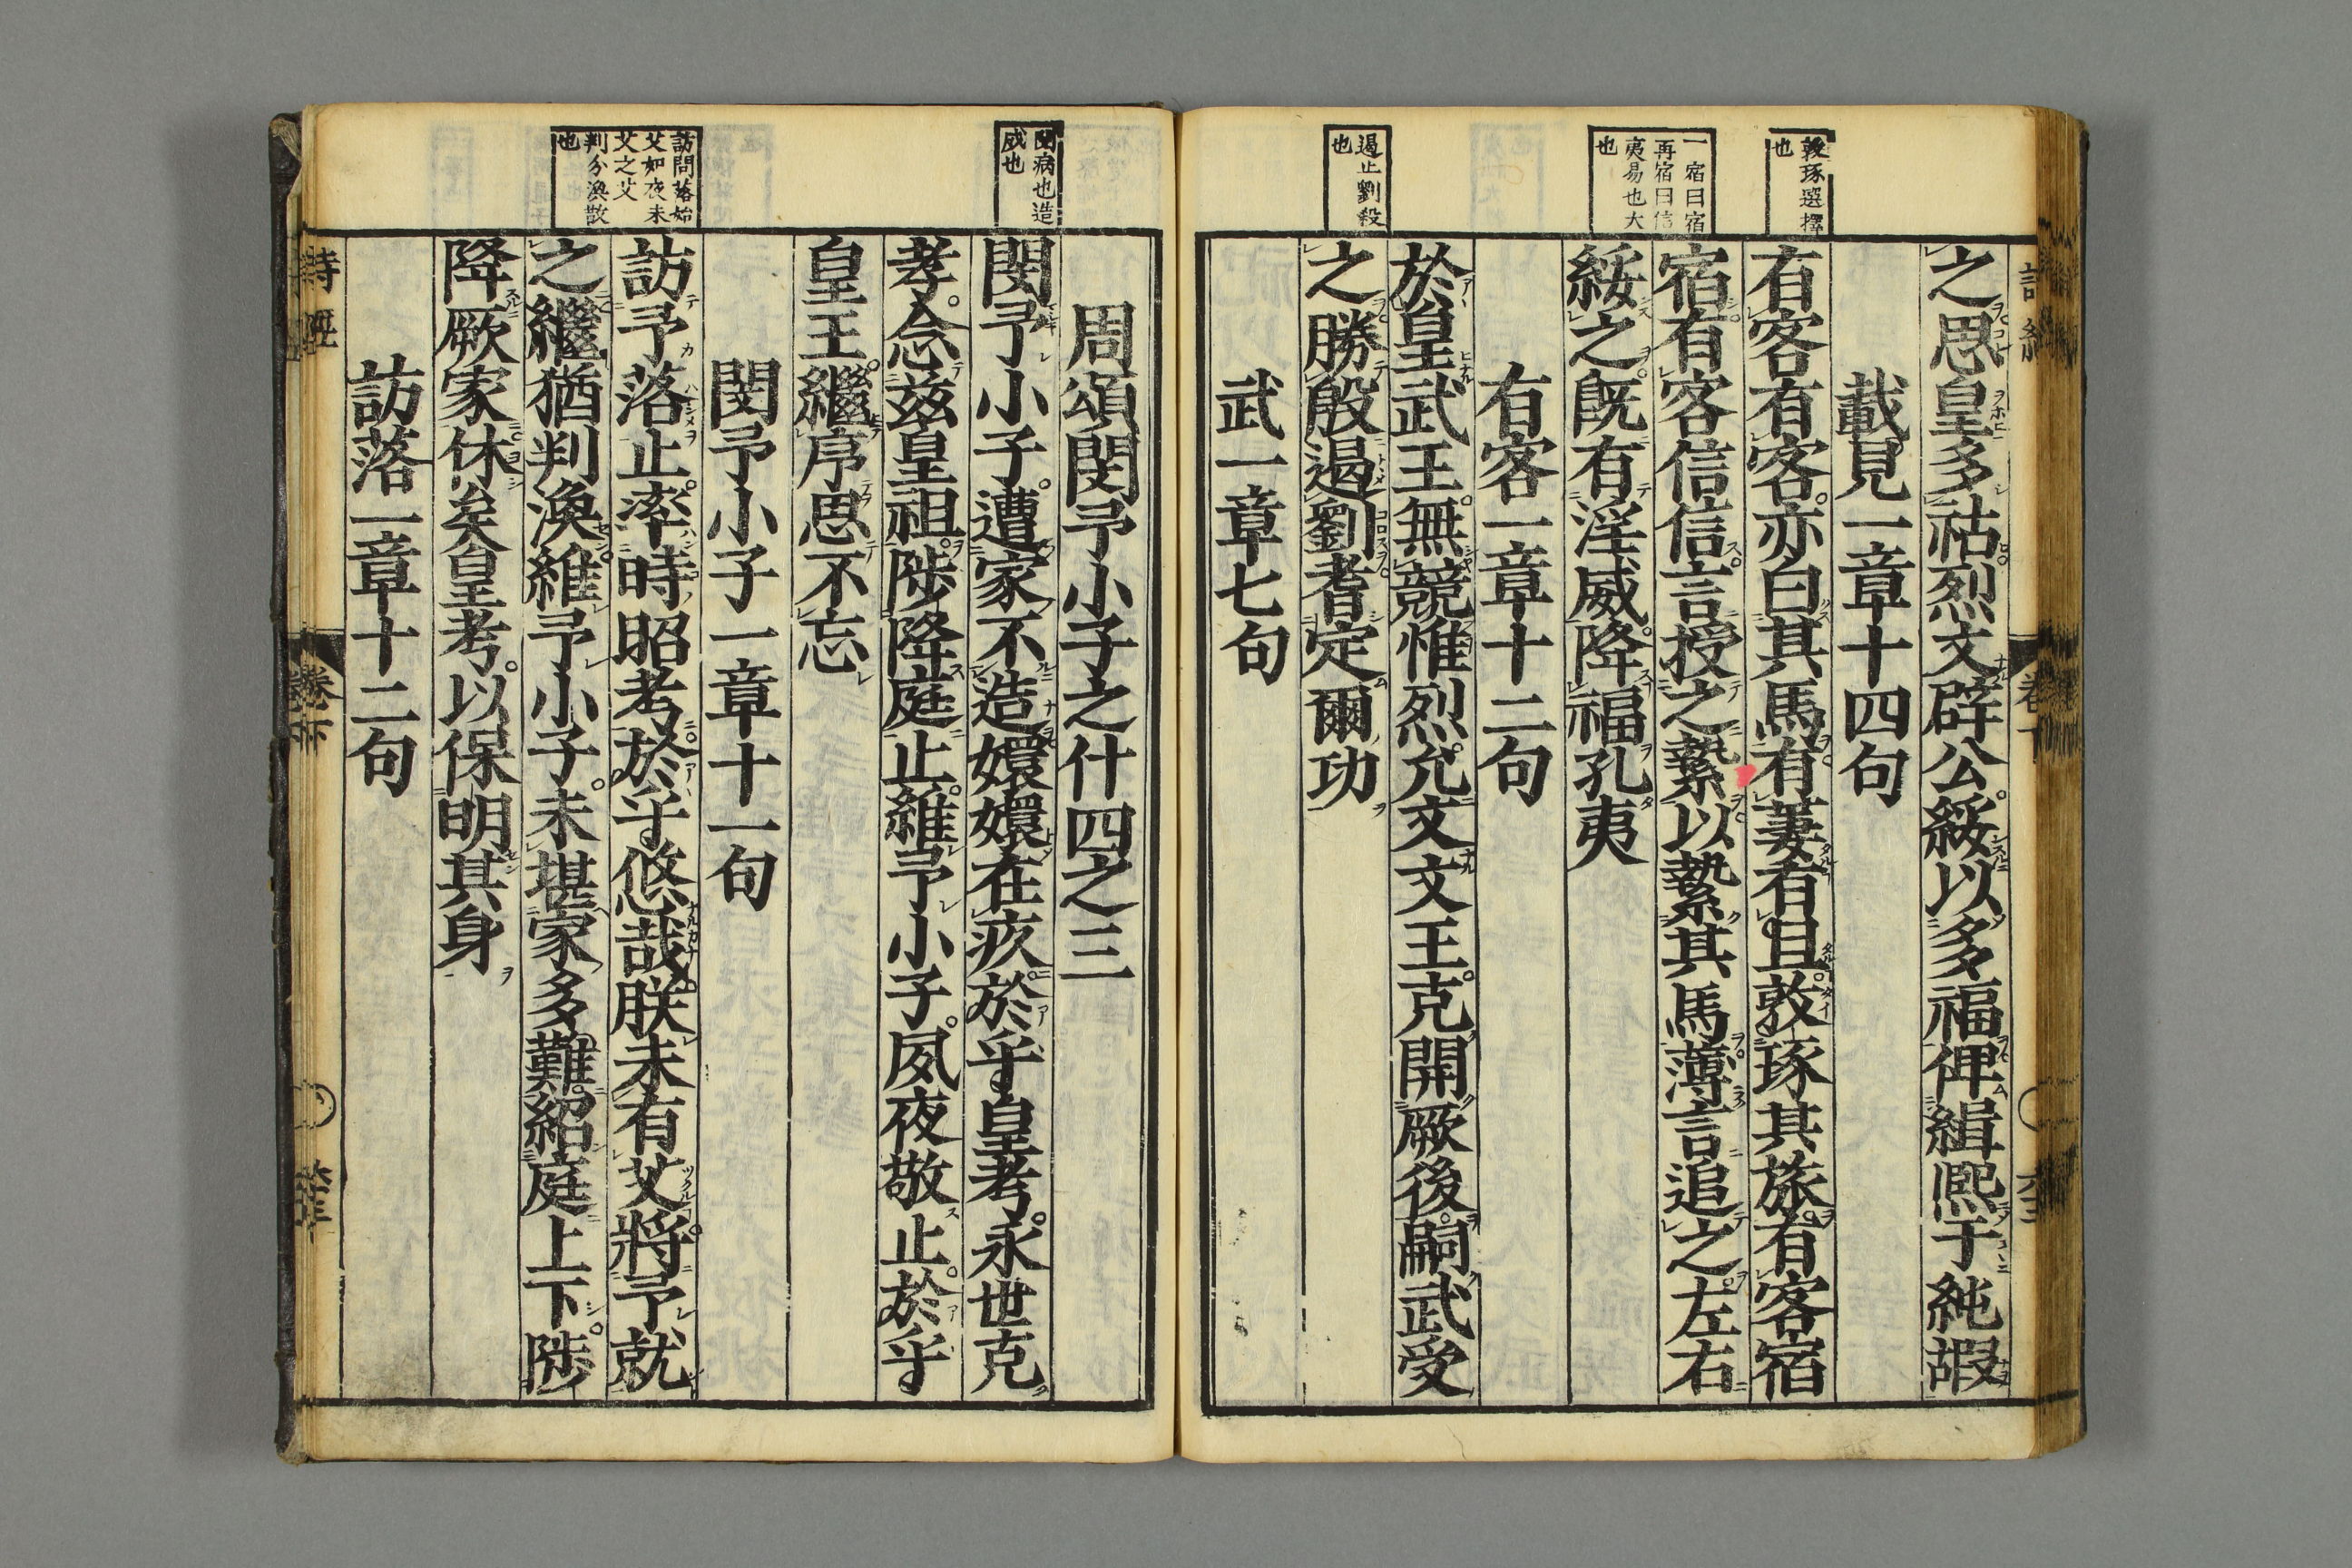 敦琢選擇
也
一宿曰宿
再宿曰信
夷易也大
也
遏止劉殺
也
之思皇多祜烈文辟公綏以多福俾緝熙于純嘏
載見一章十四句
有客有客亦白其馬有萋有且敦琢其旅有客宿
宿有客信信言授之縶以縶其馬薄言追之左右
綏之既有淫威降福孔夷
有客一章十二句
於皇武王無競惟烈允文文王克開厥後嗣武受
之勝殷遏劉耆定爾功
武一章七句
閔病也造
成也
訪問落始
艾如夜未
艾之艾
判分渙散
也
周頌閔予小子之什四之三
閔予小子遭家不造嬛嬛在疚於乎皇考永世克
孝念茲皇祖陟降庭止維予小子夙夜敬止於乎
皇王繼序思不忘
閔予小子一章十一句
訪予落止率時昭考於乎悠哉朕未有艾將予就
之繼猶判渙維予小子未堪家多難紹庭上下陟
降厥家休矣皇考以保明其身
訪落一章十二句
詩經